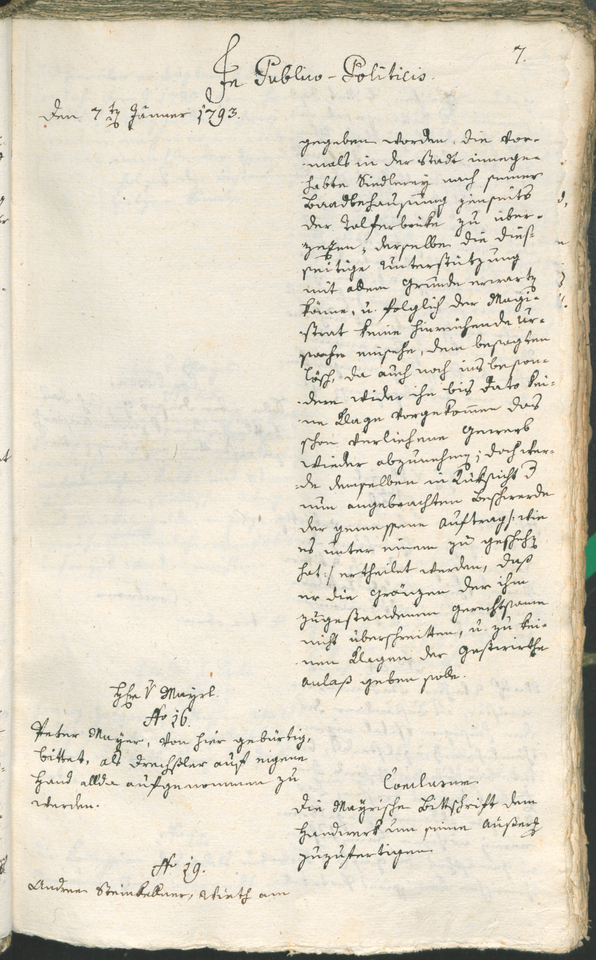 7.
In Publico-Politicis.
Den 7ten Jänner 1793.
gegeben worden, die vor-
mals in der Stadt innege-
habte Siedlerey nach seiner
Baadbehausung jenseits
der Talferbrüke zu über-
sezen, derselbe die dies-
seitige Unterstützung
mit allem Grunde erwarten
könne, u. folglich der Magi-
strat keine hinreichende Ur-
sache einsehe, dem besagten
Lösch, da auch noch insbeson-
dere wider ihn bis dato kei-
ne Klage vorgekommen das
schon verliehene Gewerb
wieder abzunehmen; doch wer-
de demselben in Rüksicht d
nun angebrachten Beschwerde
der gemessene Auftrag /: wie
es unter einem zu geschehen
hat :/ ertheilet werden, daß
er die Gränzen der ihm
zugestandenen Gerechtsame
nicht überschreitten, u. zu kei-
nen Klagen der Gastwirthe
Anlaß geben solle.
v Mayrl.
No 16.
Peter Mayer, von hier gebürtig,
bittet, als Drechsler auf eigene
Hand allda aufgenommen zu
werden.
Conclusum
Die Mayrische Bittschrift dem
Handwerk um seine Äußerung
zuzufertigen
No 19.
Andreas Steinkellner, Wirth am